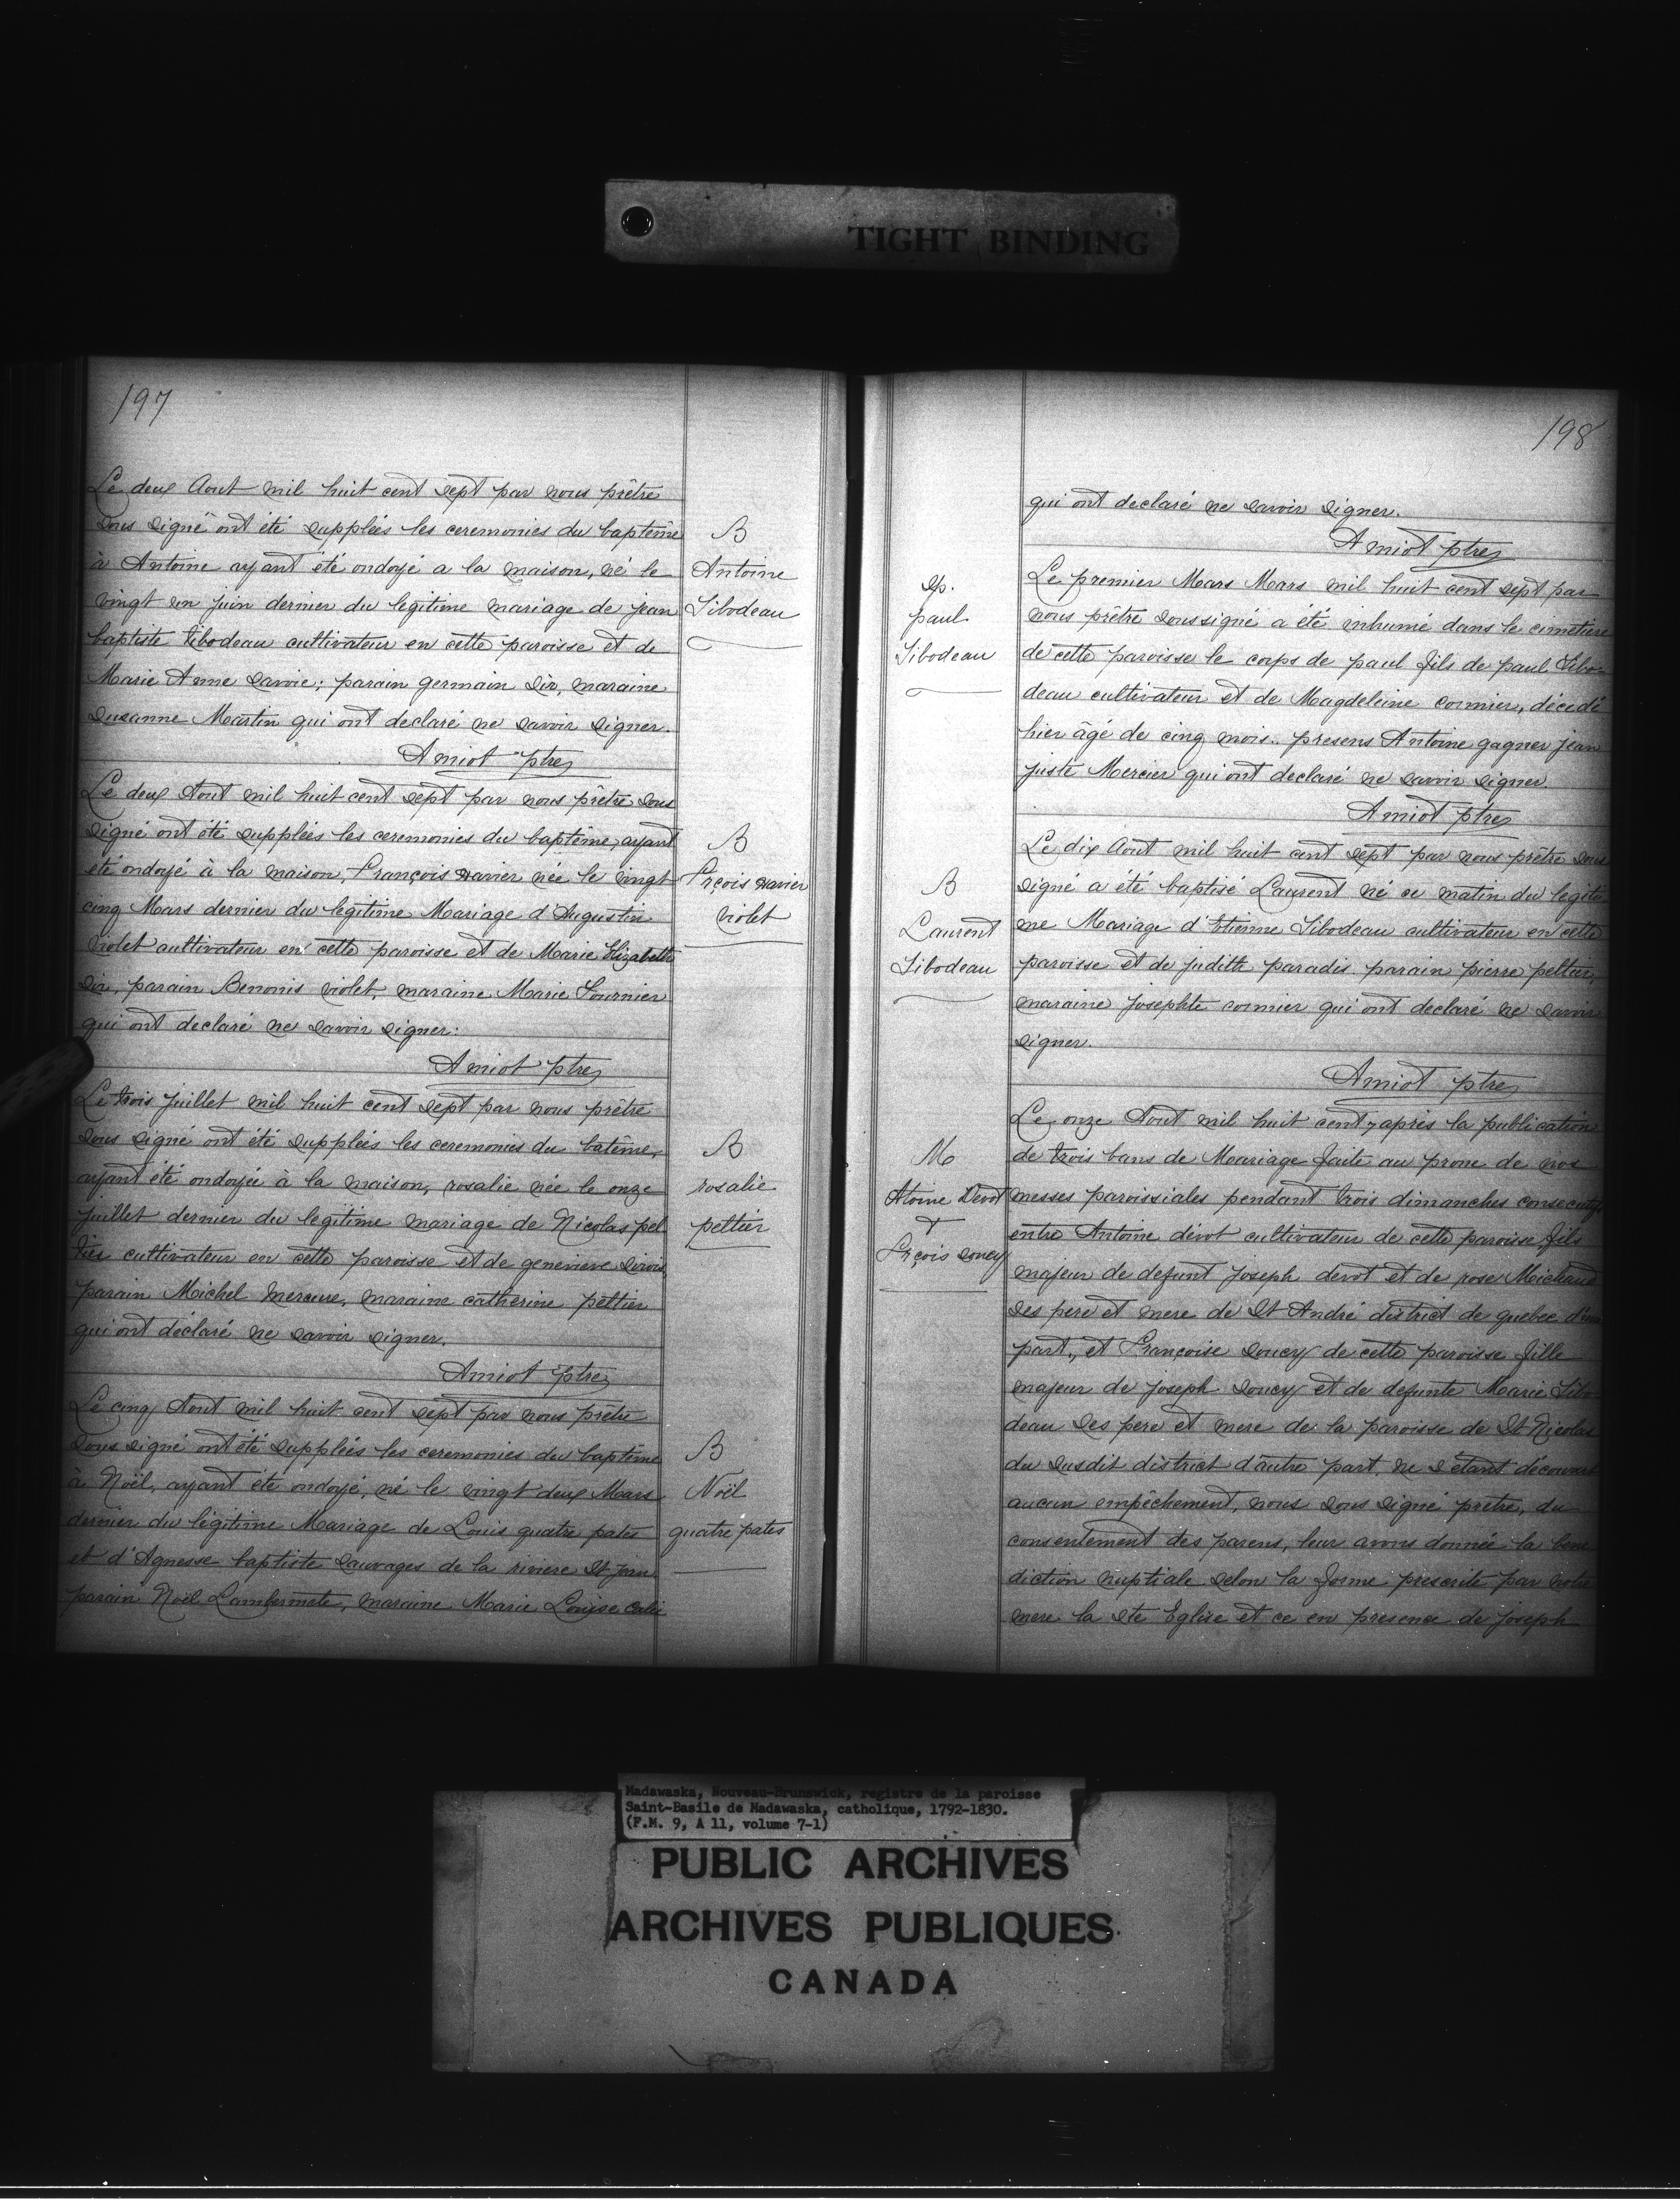 TIGHT BINDING
197
Le deux Aout mil huit cent sept par nous prêtre
sous signé ont été suppléés les ceremonies du baptême
à Antoine ayant été ondoyé a la maison, né le
vingt un juin dernier du legitime mariage de jean
baptiste tibodeau cultivateur en cette paroisse et de
Marie Anne savoie; parain germain sir, maraine
susanne Martin qui ont declaré ne savoir signer.
Amiot ptre
B
Antoine
Tibodeau
Le deux Aout mil huit cent sept par nous prêtre sous
signé ont été suppléés les ceremonies du baptême, ayant
été ondoyé à la maison, François xavier née le vingt
cinq Mars dernier du légitime Mariage d'Augustin
violet cultivateur en cette paroisse et de Marie Elizabeth
sir, parain Benonis violet, maraine Marie Fournier
qui ont declaré ne savoir signer.
Amiot ptre
B
Frçois xavier
violet
Le trois juillet mil huit cent sept par nous prêtre
sous signé ont été suppléés les ceremonies du batême,
ayant été ondoyée à la maison, rosalie née le onze
juillet dernier du legitime mariage de Nicolas pel
tier cultivateur en cette paroisse et de genevieve sirois,
parain Michel Mercure, maraine catherine peltier
qui ont déclaré ne savoir signer.
Amiot ptre
B
rosalie
peltier
Le cinq Aout mil huit cent sept par nous prêtre
sous signé ont été suppléés les ceremonies du baptême
à Noël, ayant été ondoyé, né le vingt deux Mars
dernier du légitime Mariage de Louis quatre pates
et d'Agnesse baptiste sauvages de la riviere St jean
parain Noël, maraine Marie Louise
B
Noël
quatre pates
198
qui ont declaré ne savoir signer.
Amiot ptre
Sp.
paul
Tibodeau
Le premier Mars Mars mil huit cent sept par
nous prêtre soussigné a été inhumé dans le cimetiere
de cette paroisse le corps de paul fils de paul Tibo-
deau cultivateur et de Magdeleine cormier, décédé
hier âgé de cinq mois. presens Antoine gagner jean
juste Mercier qui ont declaré ne savoir signer.
Amiot ptre
B
Laurent
Tibodeau
Le dix Aout mil huit cent sept par nous prêtre sous
signé a été baptisé Laurent né ce matin du legiti
me Mariage d'Etienne Tibodeau cultivateur en cette
paroisse et de judith paradis parain pierre peltier,
maraine josephte cormier qui ont déclaré ne savoir
signer.
Amiot ptre
M
Atoine Devot
+
Frçois soucy
Le onze Aout mil huit cent 7 après la publication
de trois bans de Mariage faite au prone de nos
messes paroissiales pendant trois dimanches consecutifs
entre Antoine dévot cultivateur de cette paroisse fils
majeur de defunt joseph devot et de rose Michaud
ses pere et mere de St André district de quebec d'une
part, et Françoise soucy de cette paroisse fille
majeur de joseph soucy et de defunte Marie Tibo
deau ses pere et mere de la paroisse de St Nicolas
du susdit district d'autre part, ne s'étant découvert
aucun empêchement, nous sous signé prêtre, du
consentement des parens, leur avons donnée la bene
diction nuptiale selon la forme prescrite par notre
mere la Ste Eglise et ce en presence de joseph
Madawaska, Nouveau-Brunswick, registre de la paroisse
Saint-Basile de Madawaska, catholique, 1792-1830.
(F.M. 9, A 11, volume 7-1)
PUBLIC ARCHIVES
ARCHIVES PUBLIQUES
CANADA